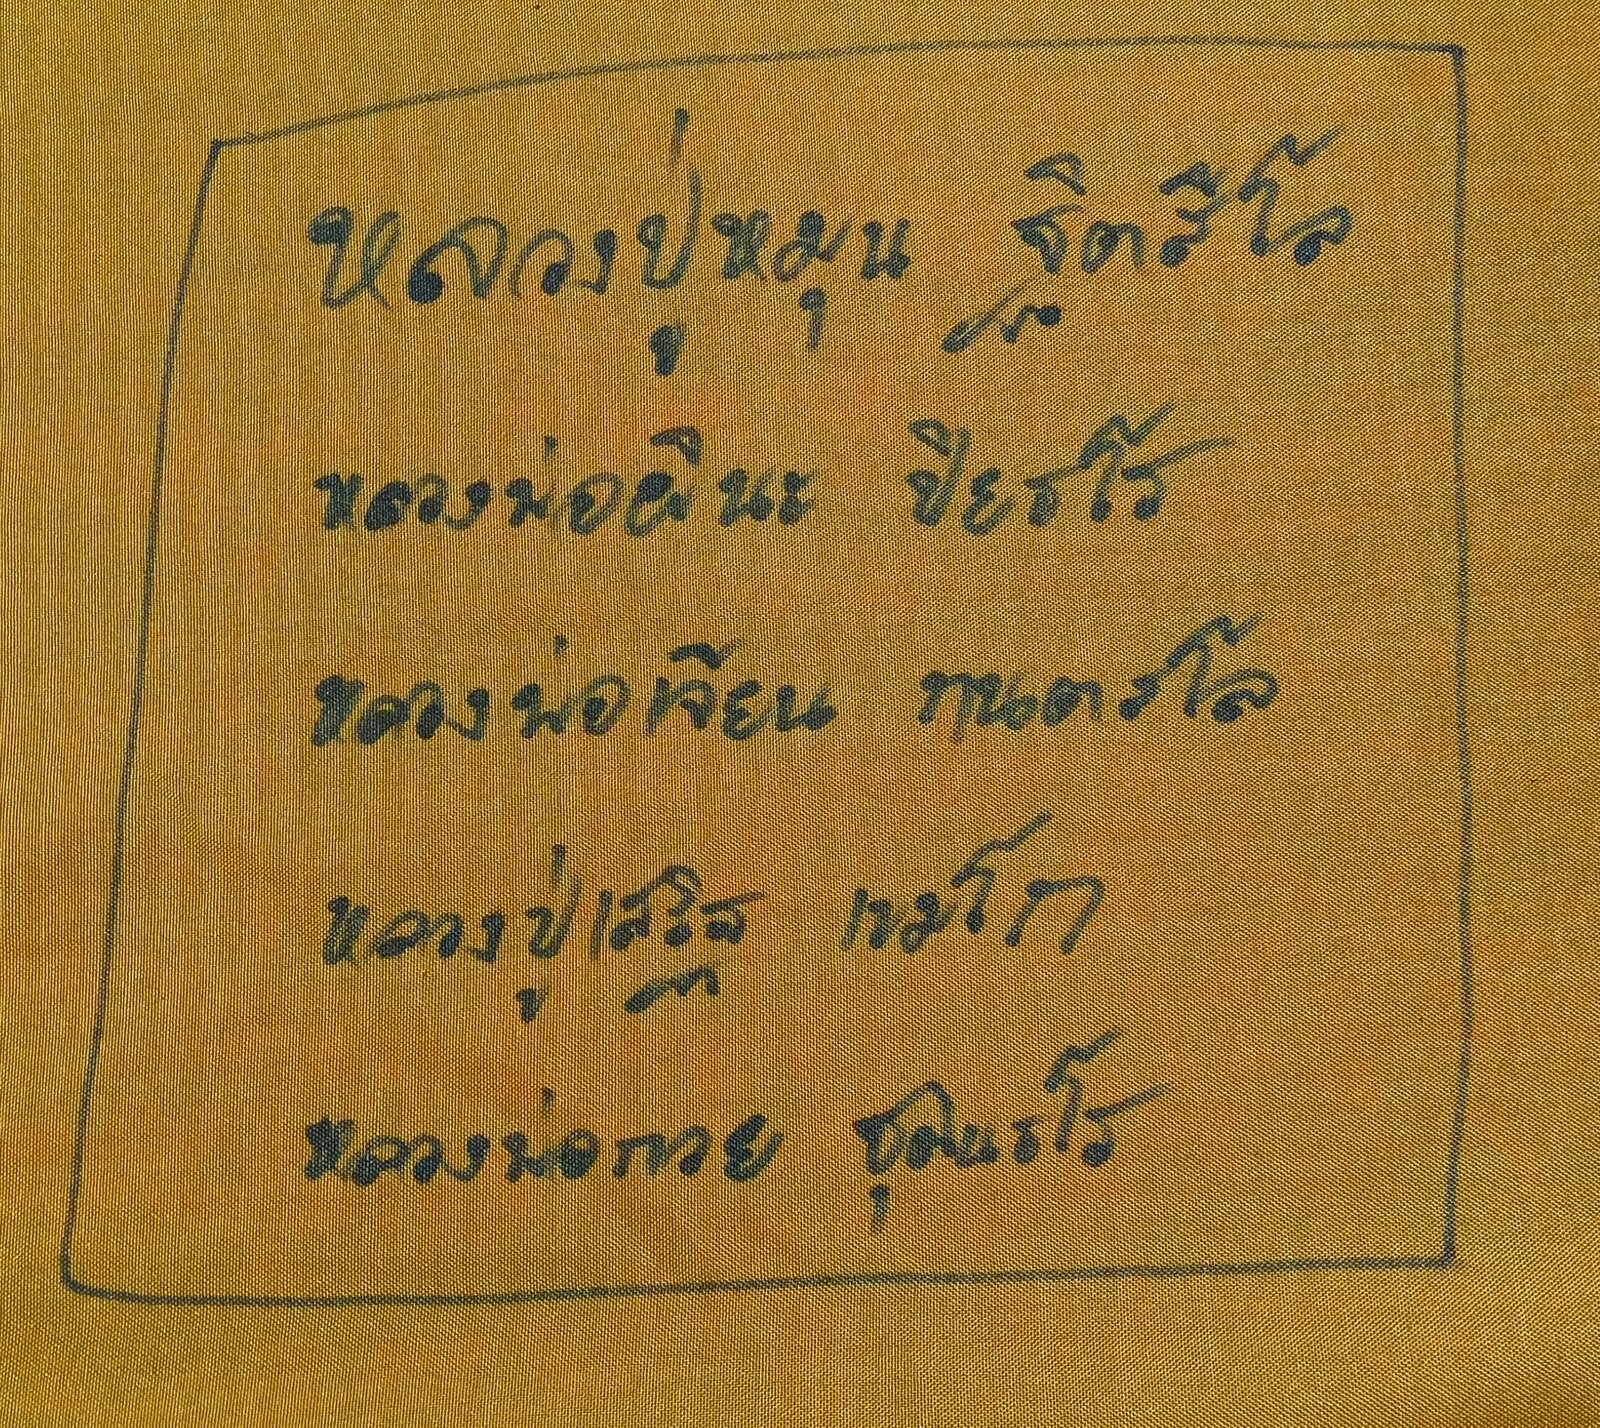 หลวงปู่หมุน ฐิตสีโล
หลวงพ่อผินะ ปิยธโร
หลวงพ่อเจียน กนตสโล
หลวงปู่เสริฐ เขมโก
หลวงพ่อกวย ชุตินธโร